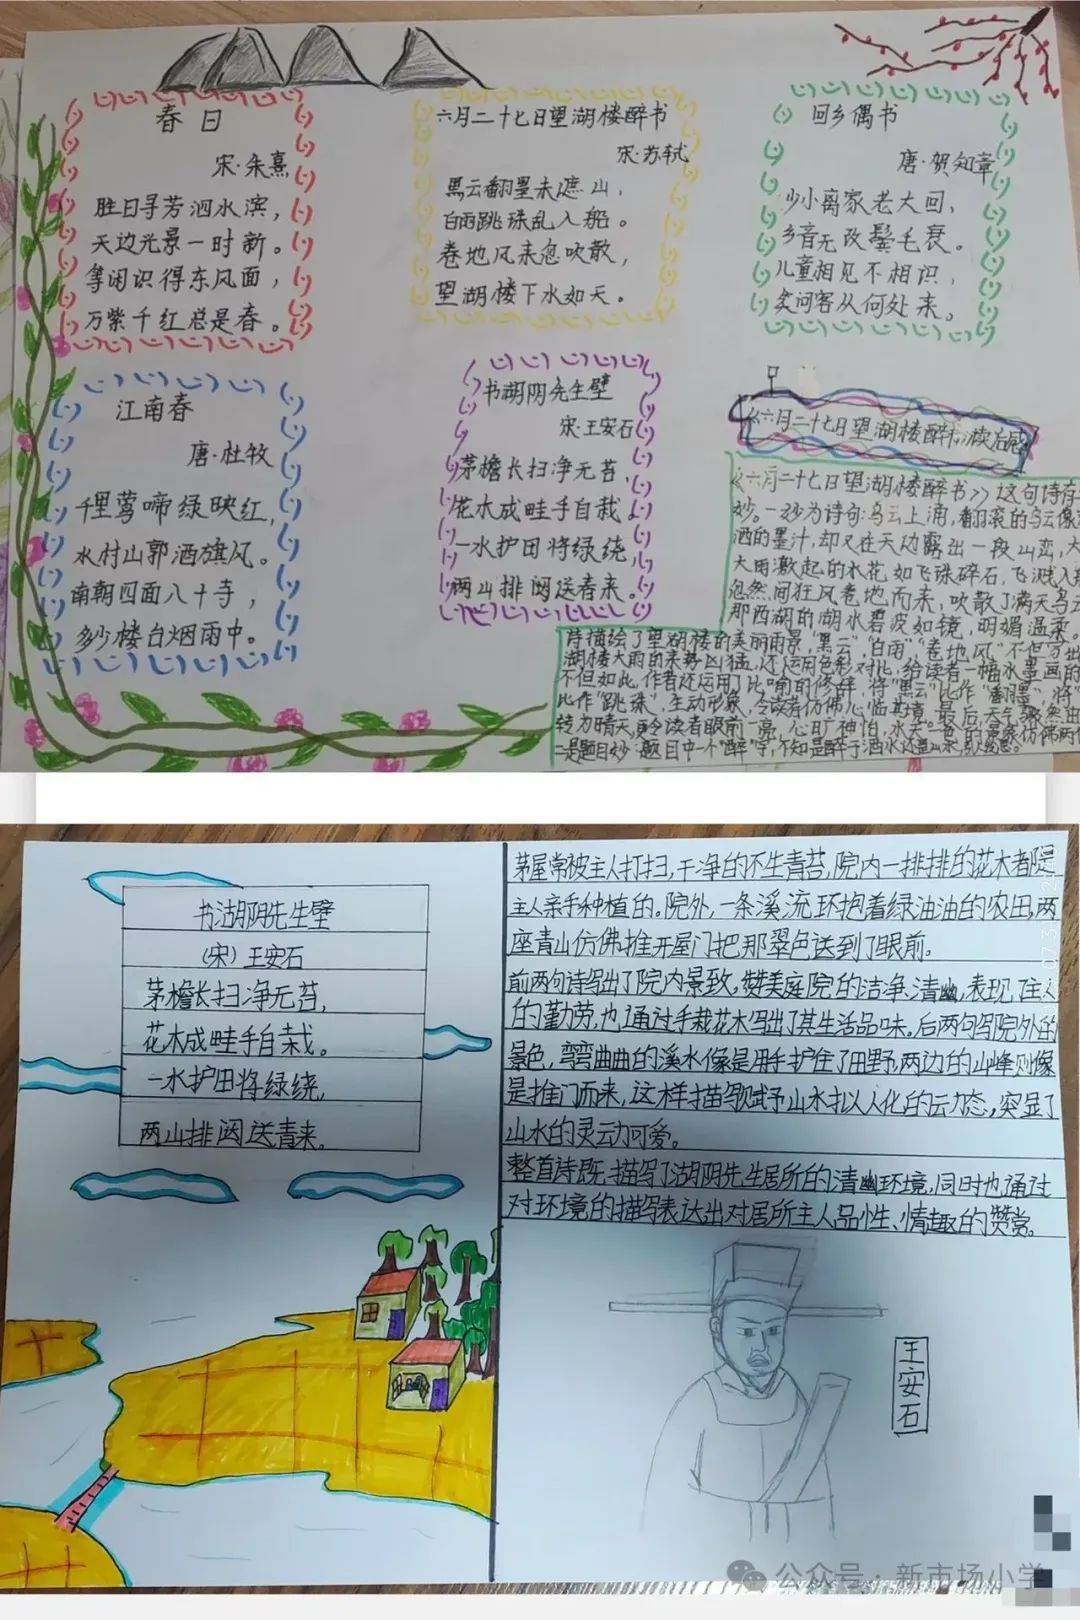 春日
宋·朱熹
胜日寻芳泗水滨，
天边光景一时新。
等闲识得东风面，
万紫千红总是春。
六月二十七日望湖楼醉书
宋·苏轼
黑云翻墨未遮山，
白雨跳珠乱入船。
卷地风来忽吹散，
望湖楼下水如天。
回乡偶书
唐·贺知章
少小离家老大回，
乡音无改鬓毛衰。
儿童相见不相识，
笑问客从何处来。
江南春
唐·杜牧
千里莺啼绿映红，
水村山郭酒旗风。
南朝四面八十寺，
多少楼台烟雨中。
书湖阴先生壁
宋·王安石
茅檐长扫净无苔，
花木成畦手自栽
一水护田将绿绕，
两山排闼送春来。
《六月二十七日望湖楼醉书》读后感
《六月二十七日望湖楼醉书》这句诗存
妙。一妙为诗句：乌云上涌，翻滚的乌云像
洒的墨汁，却又在天边露出一段山峦，大
大雨激起的水花如飞珠碎石，飞溅入
忽然间狂风卷地而来，吹散了满天乌云
那西湖的湖水碧波如镜，明媚温柔。
诗描绘了望湖楼的美丽雨景，"黑云""白雨""卷地风"不但写出
湖楼大雨的来势凶猛，还运用色彩对比，给读者一幅水墨画的
不但如此，作者还运用了比喻的修辞，将"黑云"比作"翻墨"，将
比作"跳珠"，生动形象，令读者仿佛儿临其境。最后，天气骤然由
转为晴天，更令读者眼前一亮，心旷神怡，水天一色的景象仿佛
二是题目妙：题目中一个"醉"字，不知是醉于酒水还是山水，
书湖阴先生壁
（宋）王安石
茅檐长扫净无苔，
花木成畦手自栽。
一水护田将绿绕，
两山排闼送青来。
茅屋常被主人打扫，干净的不生青苔，院内一排排的花木都是
主人亲手种植的。院外，一条溪流环抱着绿油油的农田，两
座青山仿佛推开屋门把那翠色送到了眼前。
前两句诗写出了院内景致，赞美庭院的洁净、清幽，表现主人
的勤劳，也通过手栽花木写出了其生活品味。后两句写院外的
景色，弯弯曲曲的溪水像是用手护住了田野，两边的山峰则像
是推门而来，这样描写赋予山水拟人化的动态，突显了
山水的灵动可爱。
整首诗既描写了湖阴先生居所的清幽环境，同时也通过
对环境的描写表达出对居所主人品性、情趣的赞赏。
王安石
公众号·新市场小学